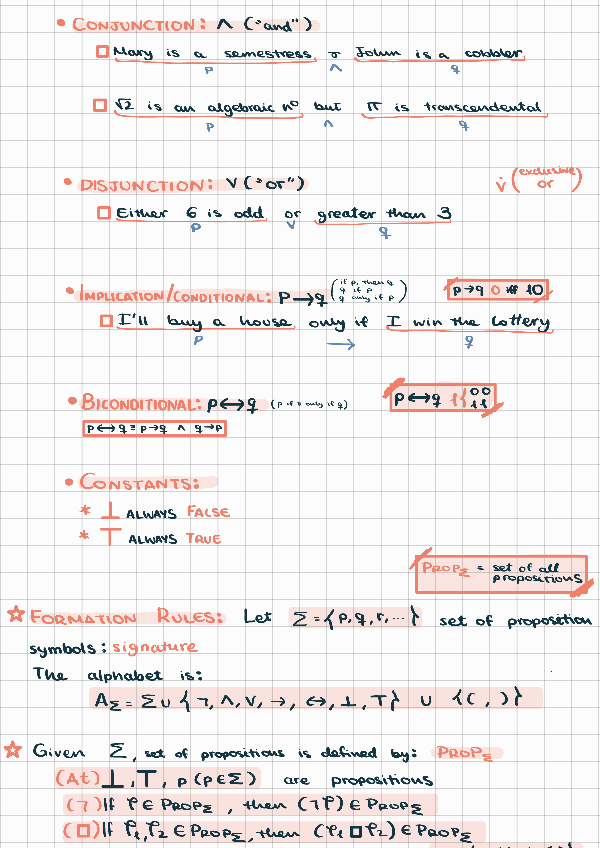 • CONJUNCTION: ∧ ("and")
Mary is a semestress ∧ John is a cobbler
p ∧ q
√2 is an algebraic nº but π is transcendental
p ∧ q
• DISJUNCTION: ∨ ("or")
∨̇ (exclusive or)
Either 6 is odd or greater than 3
p ∨ q
• IMPLICATION/CONDITIONAL: p→q (if p, then q
q if p
q only if p)
p→q 0 iff 10
I'll buy a house only if I win the lottery
p → q
• BICONDITIONAL: p↔q (p if & only if q)
p↔q 1 { 00
11
p↔q ≡ p→q ∧ q→p
• CONSTANTS:
* ⊥ ALWAYS FALSE
* ⊤ ALWAYS TRUE
PROP_Σ = set of all
propositions
☆ FORMATION RULES: Let Σ = {p, q, r, ...} set of proposition
symbols: signature
The alphabet is:
A_Σ = Σ ∪ {¬, ∧, ∨, →, ↔, ⊥, ⊤} ∪ {(, )}
☆ Given Σ, set of propositions is defined by: PROP_Σ
(At) ⊥, ⊤, p (p∈Σ) are propositions
(¬) If φ ∈ PROP_Σ, then (¬φ) ∈ PROP_Σ
(□) If φ₁, φ₂ ∈ PROP_Σ, then (φ₁ □ φ₂) ∈ PROP_Σ